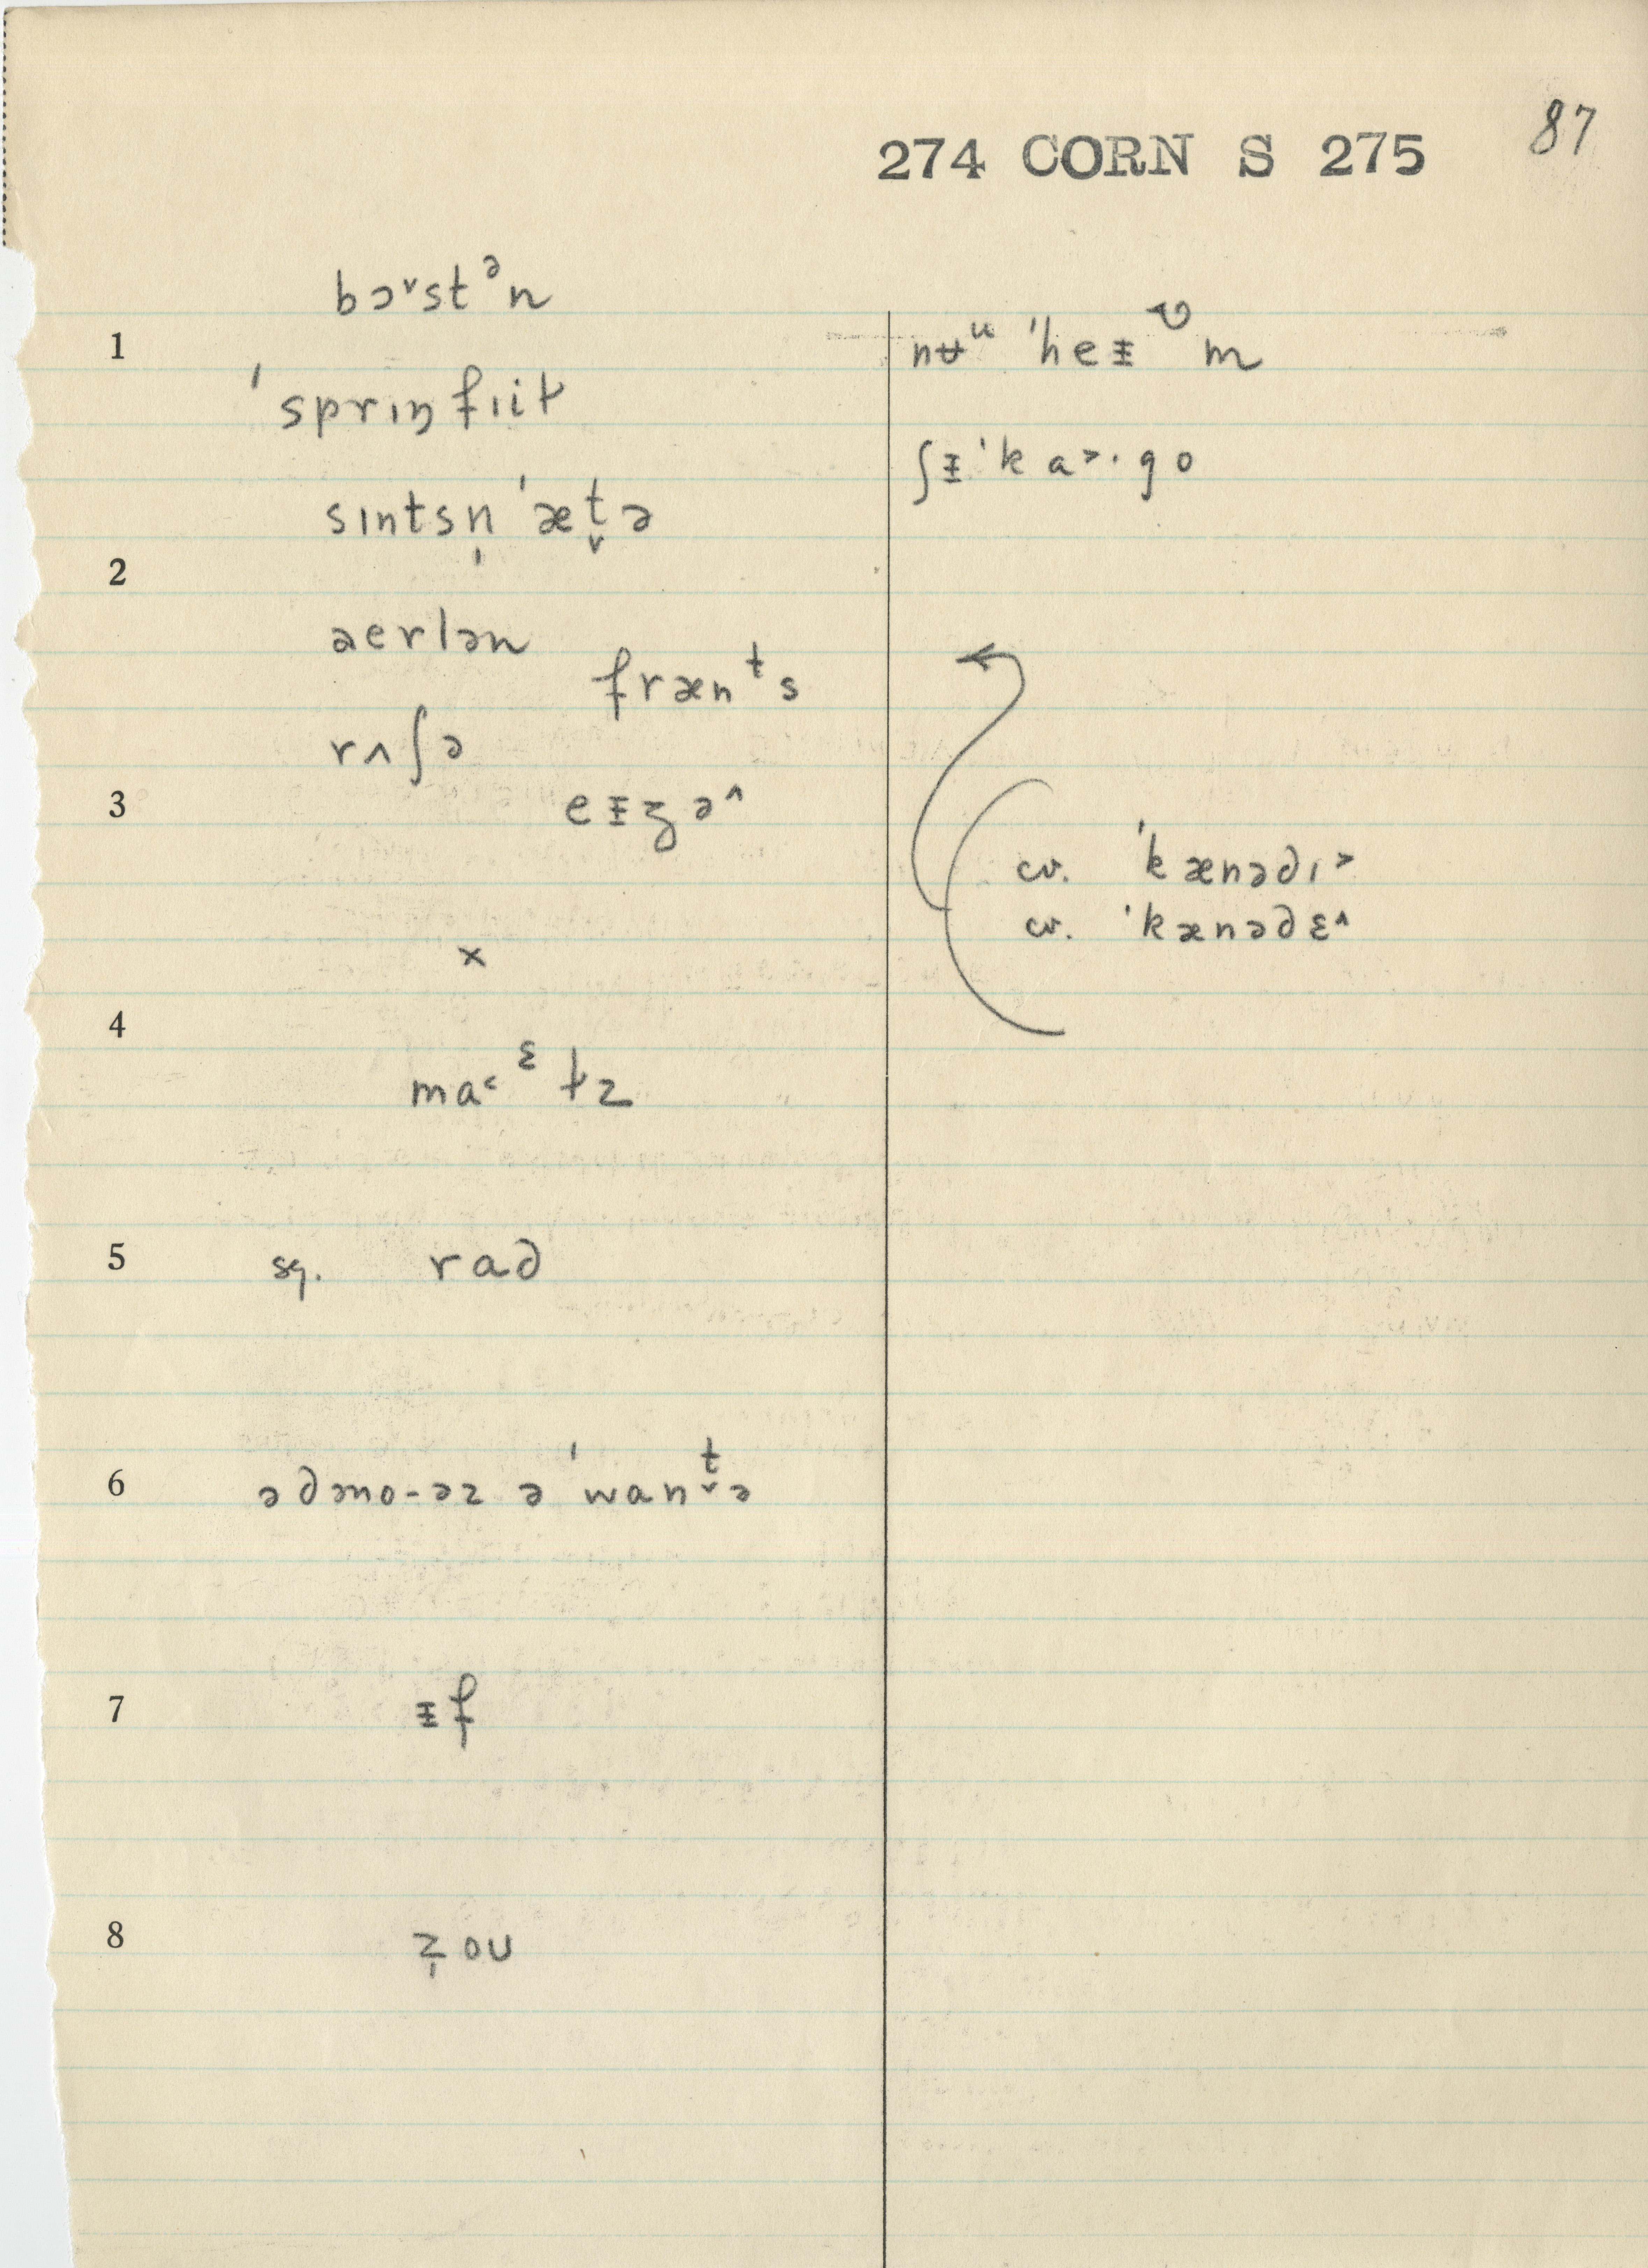 87
274 CORN S 275
bɔ˅stᵊn
1
ˈsprɪŋfɪiɫ
sɪntsn̩ˈæt̬ə
2
aerlən
frænᵗs
rʌʃə
3
eᵻʒə^
x
4
ma˂ᵋɫz
5 sq. rad
6 ədəno-əz ə ˈwant̬ə
7 ᵻf
8 z̩ou
nʉᵘ ˈheᵻᶷm
ʃᵻˈka˃·go
cv. ˈkænədɪ˃
cv. ˈkænədɛ^